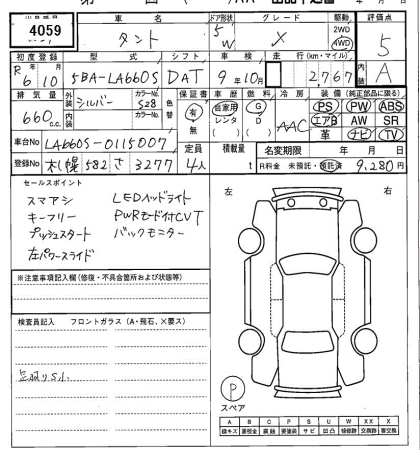 4059
車名 ドア形状 グレード 駆動 評価点
タント 5W X 2WD 4WD 5
初度登録 型式 シフト 車検 走行(km・マイル) 内装
R6年10月 5BA-LA660S DAT 9年10月 2,767 A
排気量 外装 カラーNo. 色替 保証書 車歴 燃料 冷房 装備(純正部品に限る)
660c.c. シルバー S28 有 無 自家用 レンタ D G D t AAC PS PW ABS
エアB AW SR
革 ナビ TV
車台No LA660S-0115007 定員 積載量 名変期限 年 月 日
登録No 札幌 582 さ 3277 4人 t R料金 未預託・預託済 9,280円
セールスポイント
スマアシ LEDヘッドライト
キーフリー PWRモード付CVT
プッシュスタート バックモニター
左パワースライド
左 右
※注意事項記入欄(修復・不具合箇所および状態等)
検査員記入 フロントガラス(A・飛石、×要ス)
P
スペア
A B C P S U W XX X